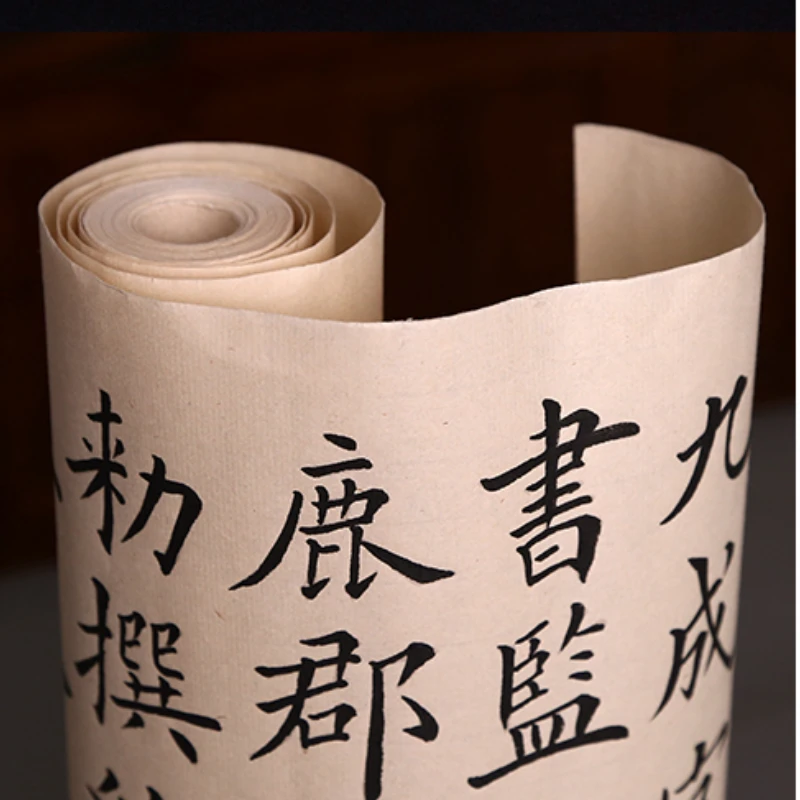 九成
書監
鹿郡
勑撰